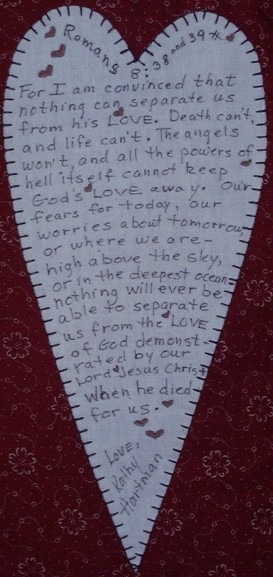 Romans 8:38 and 39
For I am convinced that
nothing can separate us
from his LOVE. Death can't,
and life can't. The angels
won't, and all the powers of
hell itself cannot keep
God's LOVE away. Our
fears for today, our
worries about tomorrow,
or where we are -
high above the sky,
or in the deepest ocean -
nothing will ever be
able to separate
us from the LOVE
of God demonst-
rated by our
Lord Jesus Christ
when he died
for us.
LOVE,
Kathy
Hartman